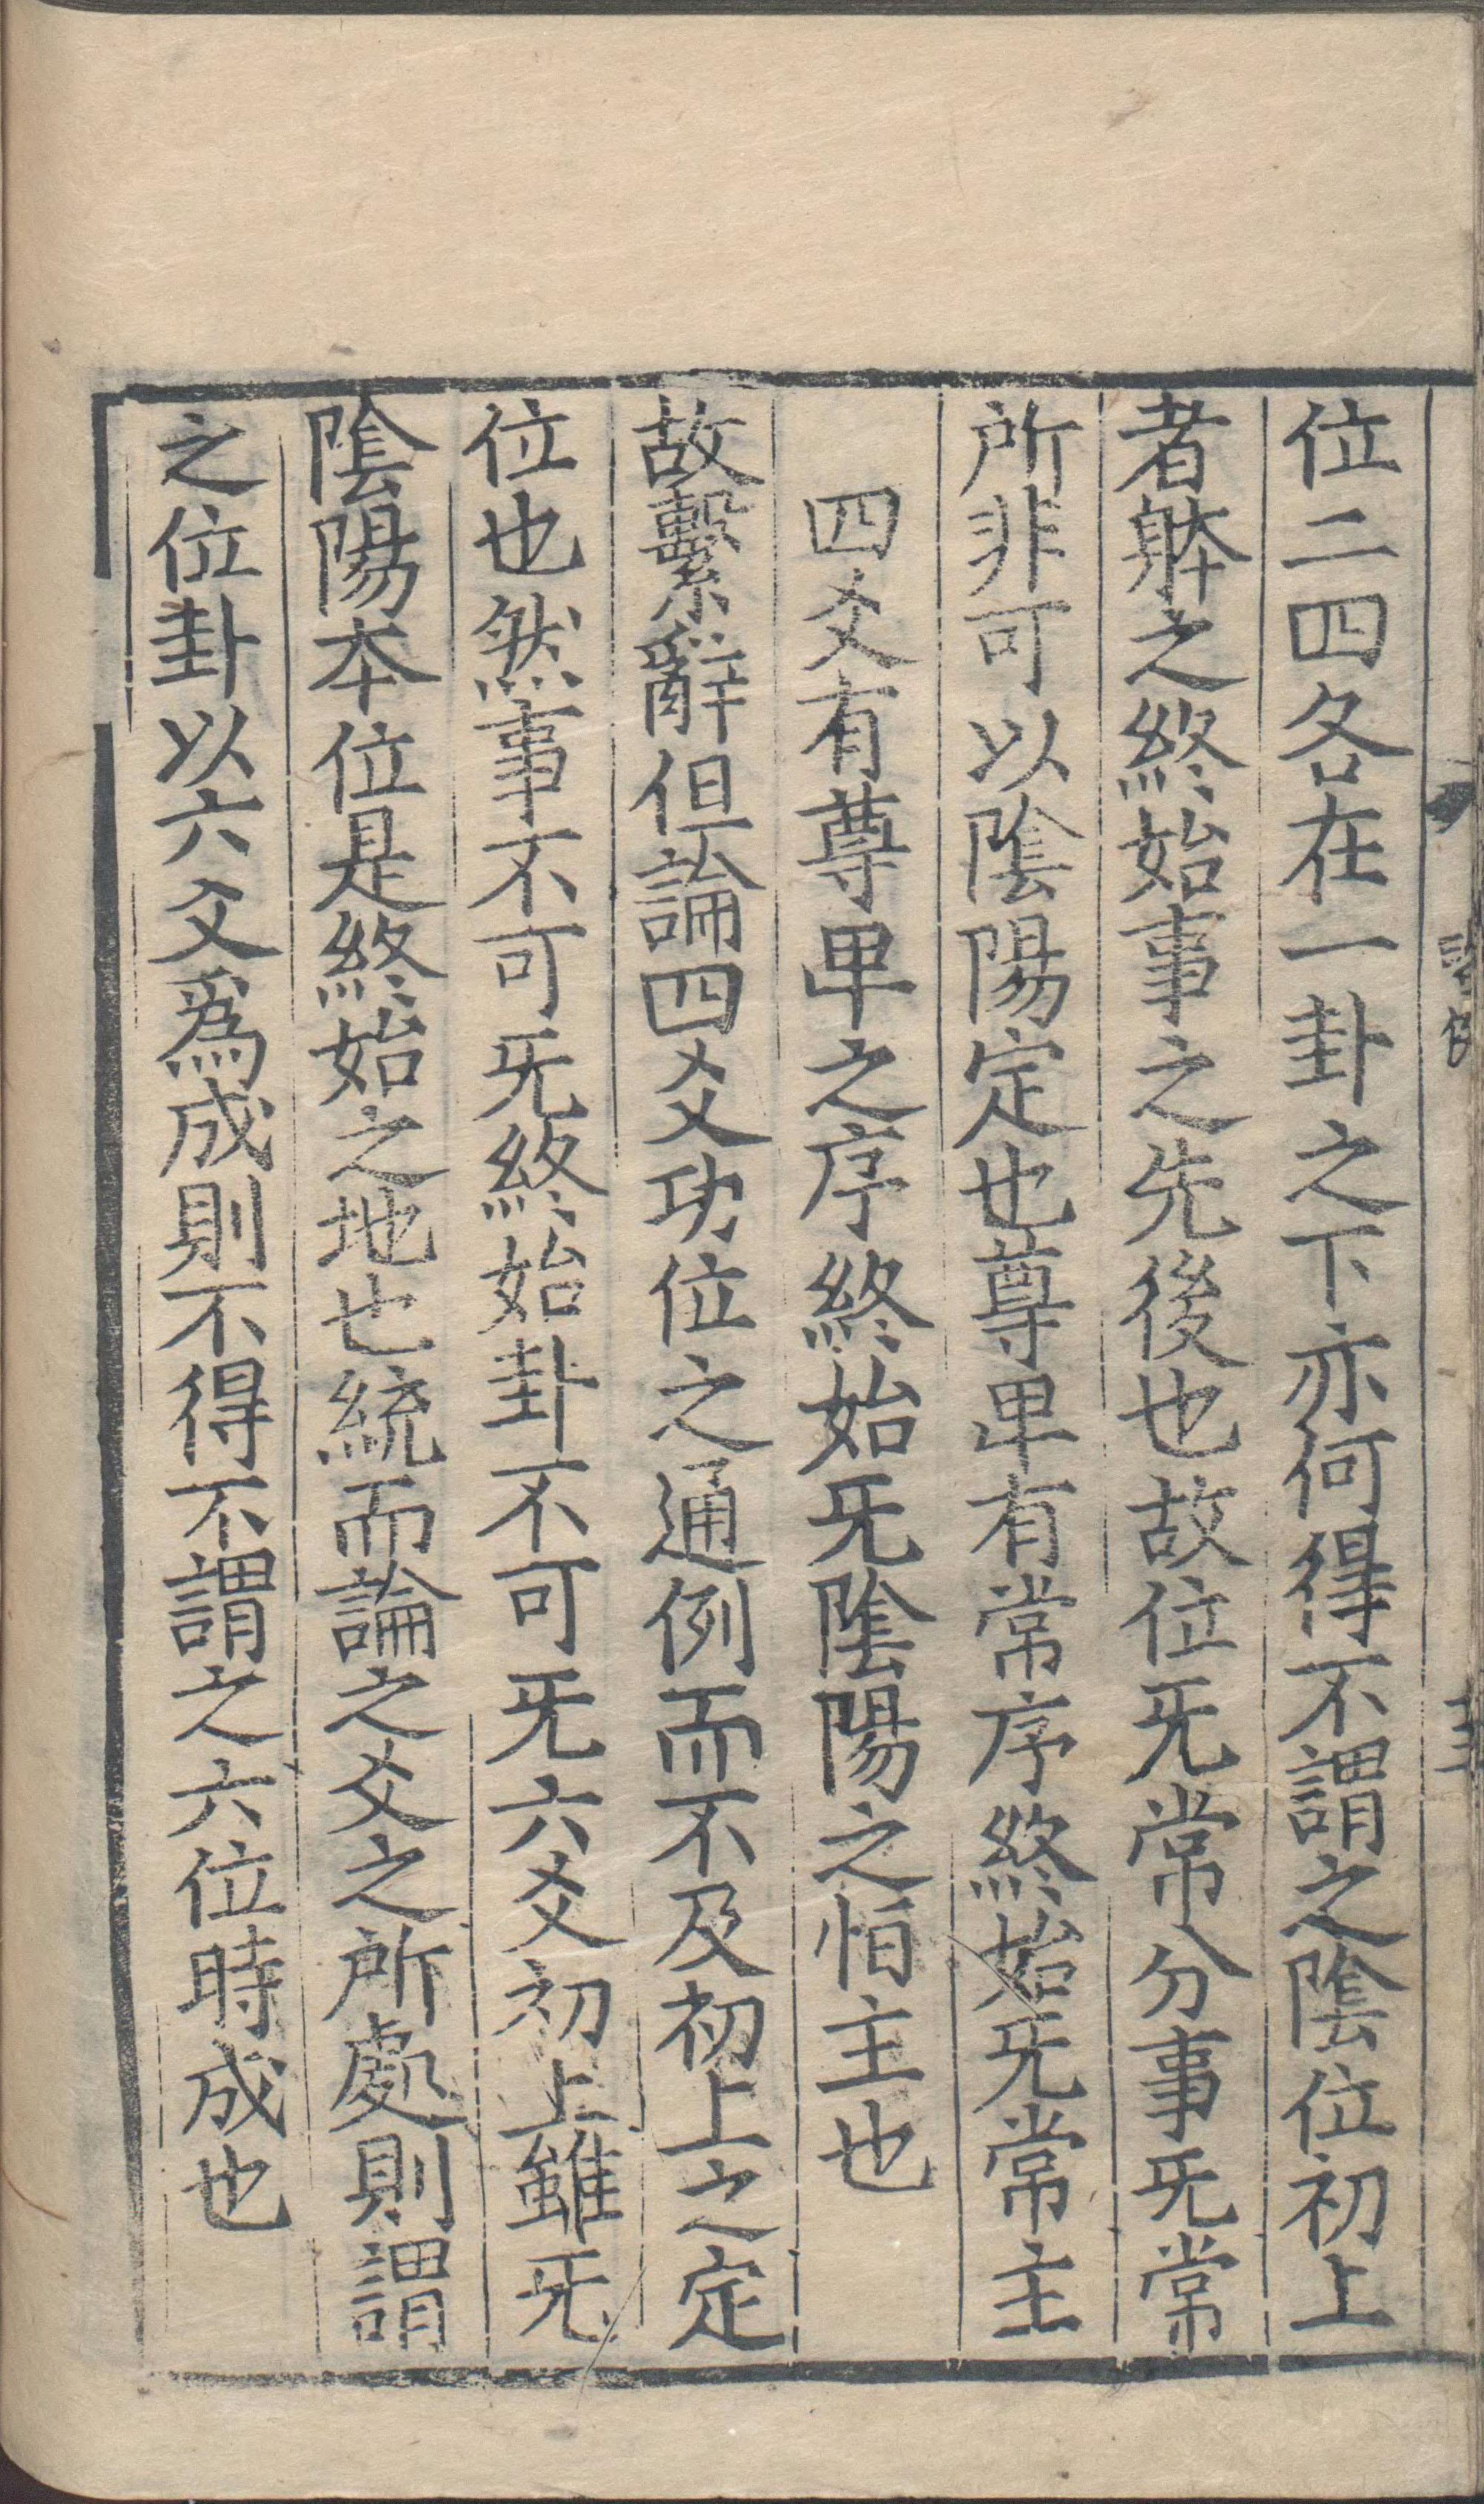 位二四各在一卦之下亦何得不謂之陰位初上
者躰之終始事之先後也故位旡常分事旡常
所非可以陰陽定也尊卑有常序終始旡常主
四爻有尊卑之序終始旡陰陽之恒主也
故繫辭但論四爻功位之通例而不及初上之定
位也然事不可旡終始卦不可旡六爻初上雖旡
陰陽本位是終始之地也統而論之爻之所處則謂
之位卦以六爻爲成則不得不謂之六位時成也